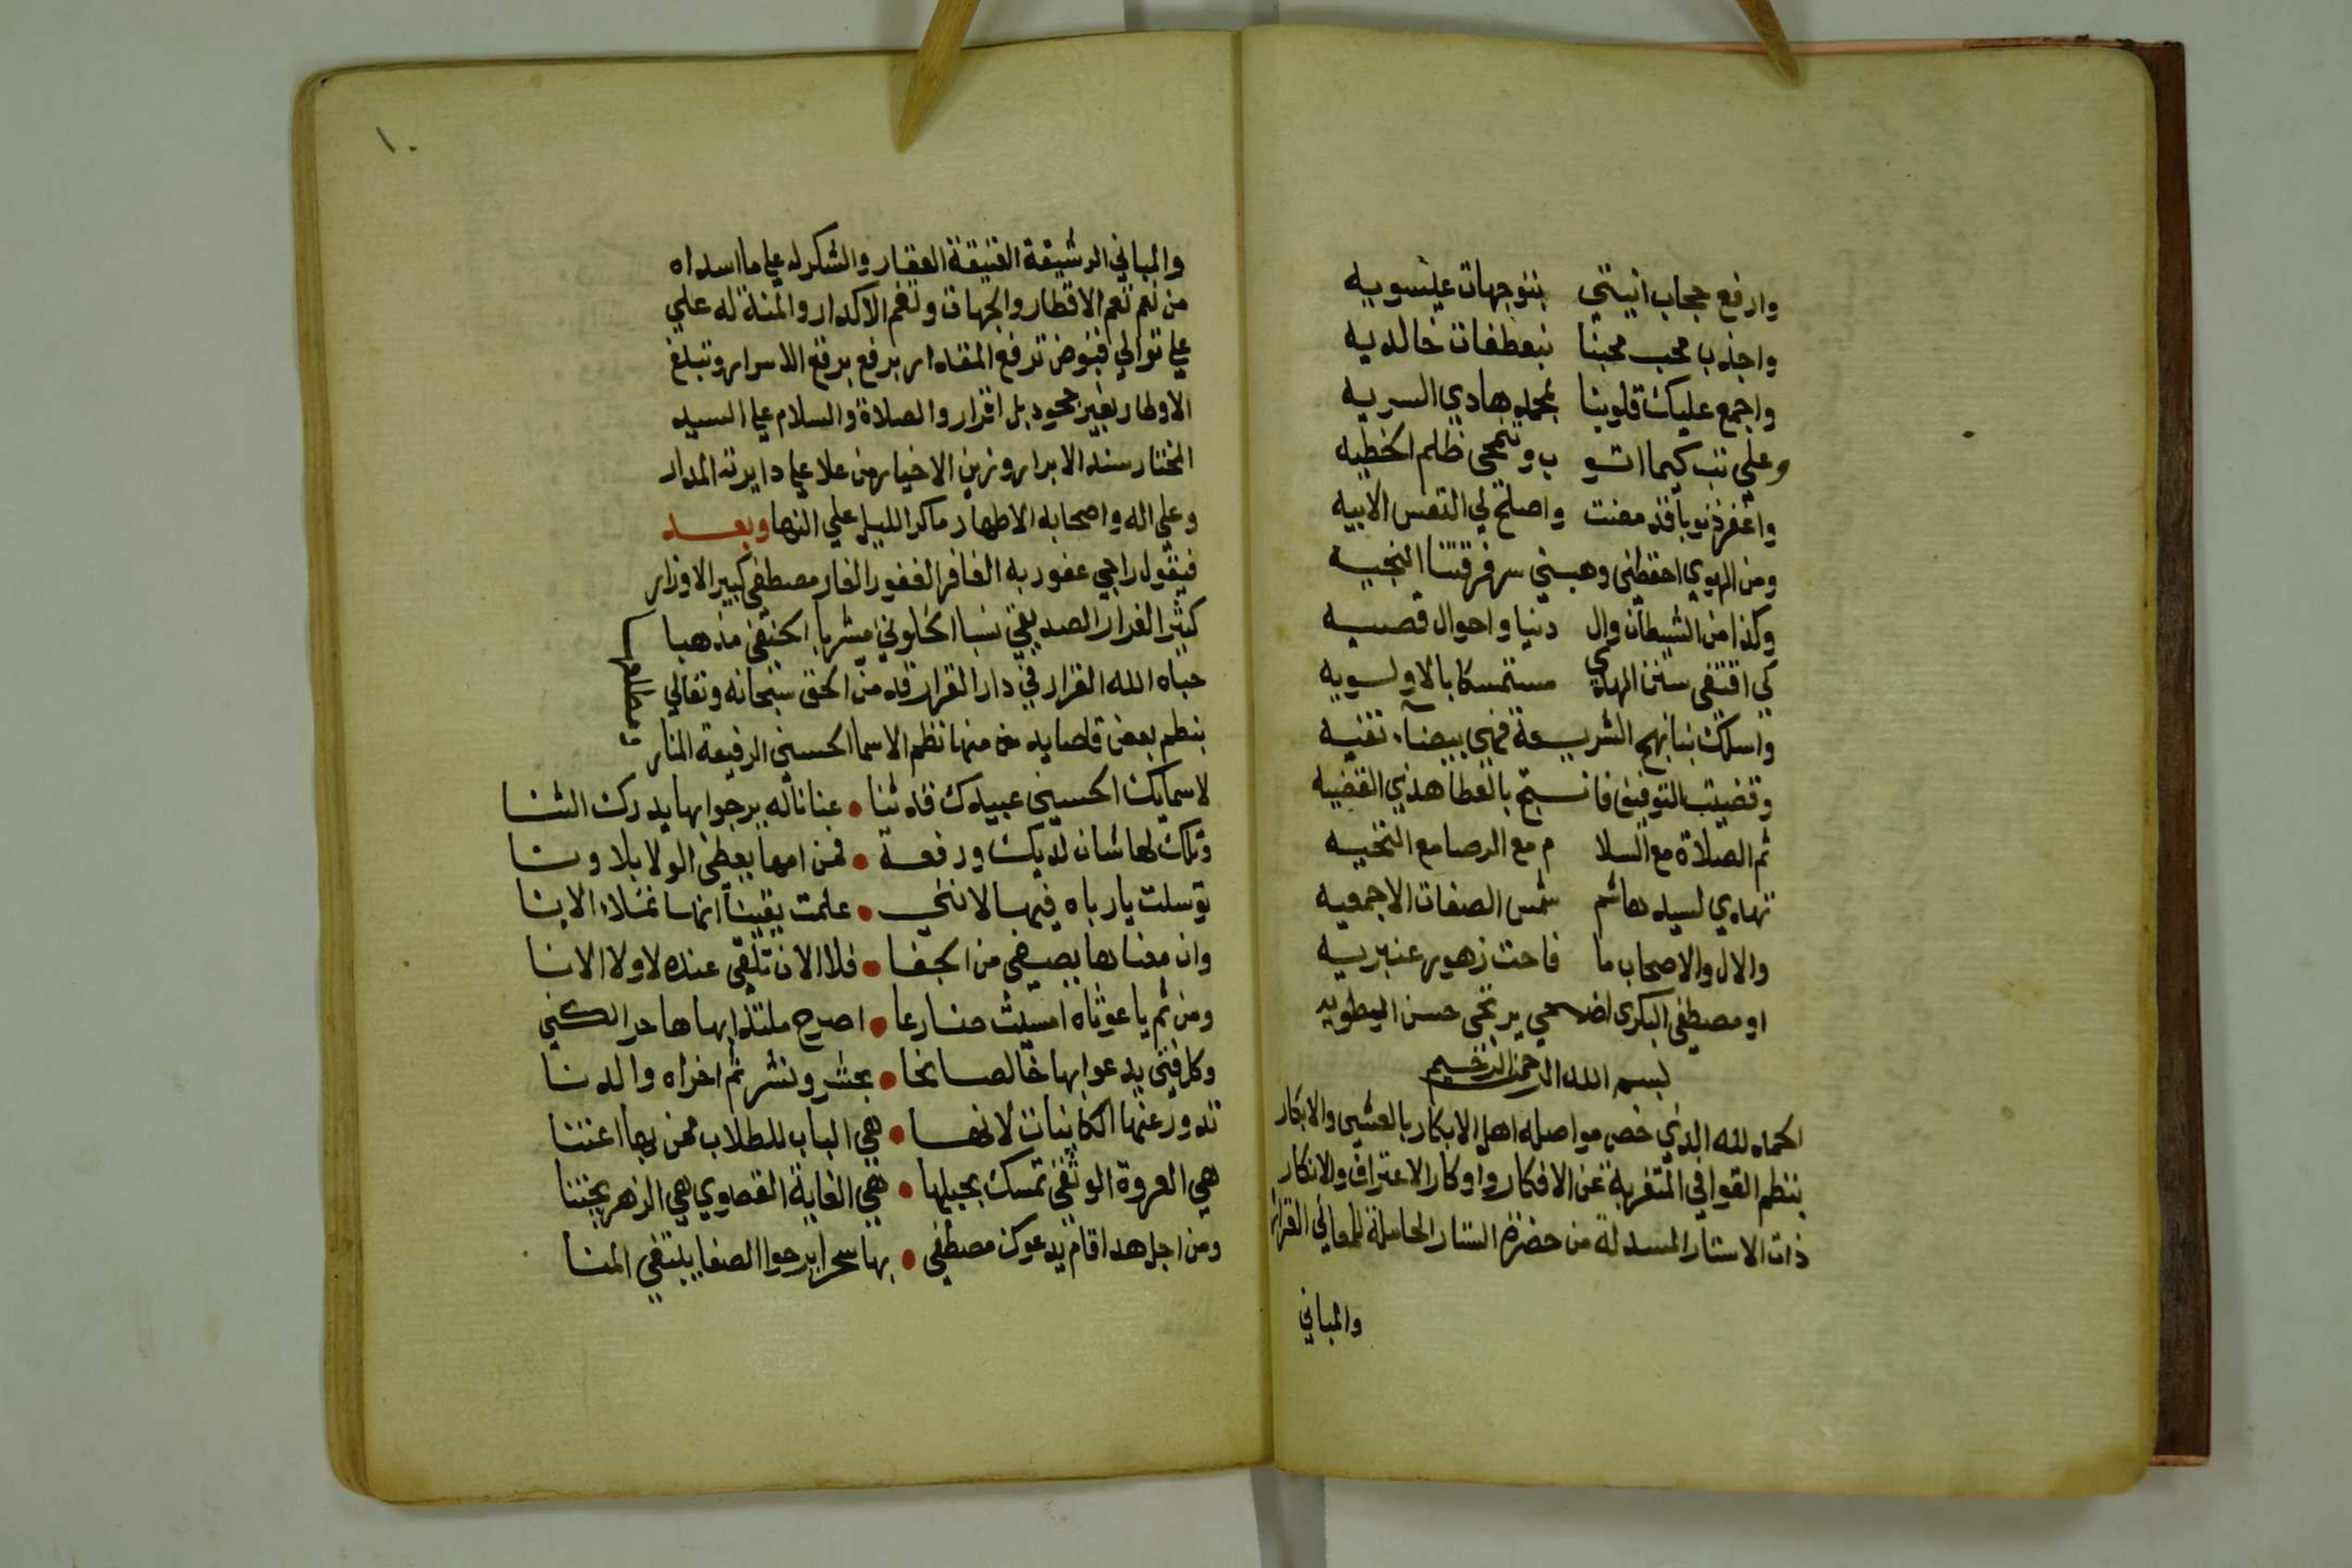 وارفع حجاب انيتي بتوجهات عيسويه
واجذب محب محبنا بتعطفات خالديه
واجمع عليك قلوبنا بمحمد هادي السريه
وعلي تب كيما اتو ب وتنمحى ظلم الخطيه
واغفر ذنوبا قد مضت واصلح لي النفس الابيه
ومن الهوي احفظني وهبني سر فرقتنا النجيه
وكذا من الشيطان وال دنيا واحوال قصيه
كي اقتفى سنن الهدي مستمسكا بالاولسويه
واسلك بنا نهج الشريعة فهي بيضآء نقيه
وقضيت التوفيق فا نتج بالعطا هذي القضيه
ثم الصلاة مع السلا م مع الرضا مع التحيه
تهدي لسيد هاشم شمس الصفات الاجمعيه
والال والاصحاب ما فاحت زهور عنبريه
او مصطفى البكرى اضحى يرتجى حسن الطويه
بسم الله الرحمن الرحيم
الحمد لله الذي خص مواصله اهل الابكار بالعشي والابكار
بنظم القوافي المتغربة عن الافكار واوكار الاعتراف والانكار
ذات الاستار المسدلة من حضرة الستار الحاملة للمعاني الغزار
والمباني
١٠
والمباني الرشيقة العتيقة العقار والشكر له علي ما اسداه
من نعم تعم الاقطار والجهات وتغم الاكدار والمنة له علي
علي توالي فيوض ترفع المقدار برفع برقع الاسرار وتبلغ
الاوطار بغير جحود بل اقرار والصلاة والسلام علي السيد
المختار سند الابرار وزين الاخيار من علا علي دايرته المدار
وعلي اله واصحابه الاطهار ما كر الليل علي النها وبعد
فيقول راجي عفو ربه الغافر الغفور الغفار مصطفى كبير الاوزار
كثير الفرار الصديقي نسبا الخلوتي مشربا الحنفي مذهبا
حباه الله القرار في دار القرار قد من الحق سبحانه وتعالي
بنظم بعض قصايد من منها نظم الاسما الحسني الرفيعة المنار
لاسمايك الحسيني عبيدك قد ثنا • عنانا له يرجوا بها يدرك الثنا
وتلك لها شان لديك ورفعة • فمن امها يعطى الولا بلا ونا
توسلت يا رباه فيها لانني • علمت يقينا انها تملاء الانا
وان معناها يصفي من الجفا • فلا الان تلقى عنده لا ولا الانا
ومن ثم يا غوثاه امسيت ضارعا • اصرح ملتذا بها
وكل فتى يدعوا بها خالصا نحا • بحشر ونشر ثم اخراه والدنا
تدور عنها الكاينات لانها • هي الباب للطلاب ممن بها اعتنا
هي العروة الوثقى تمسك بحبلها • هي الغاية القصوي هي الزهر يجتنا
ومن اجل هذا قام يدعوك مصطفى • بها سحرا يرجوا الصفا يبتغي المنا